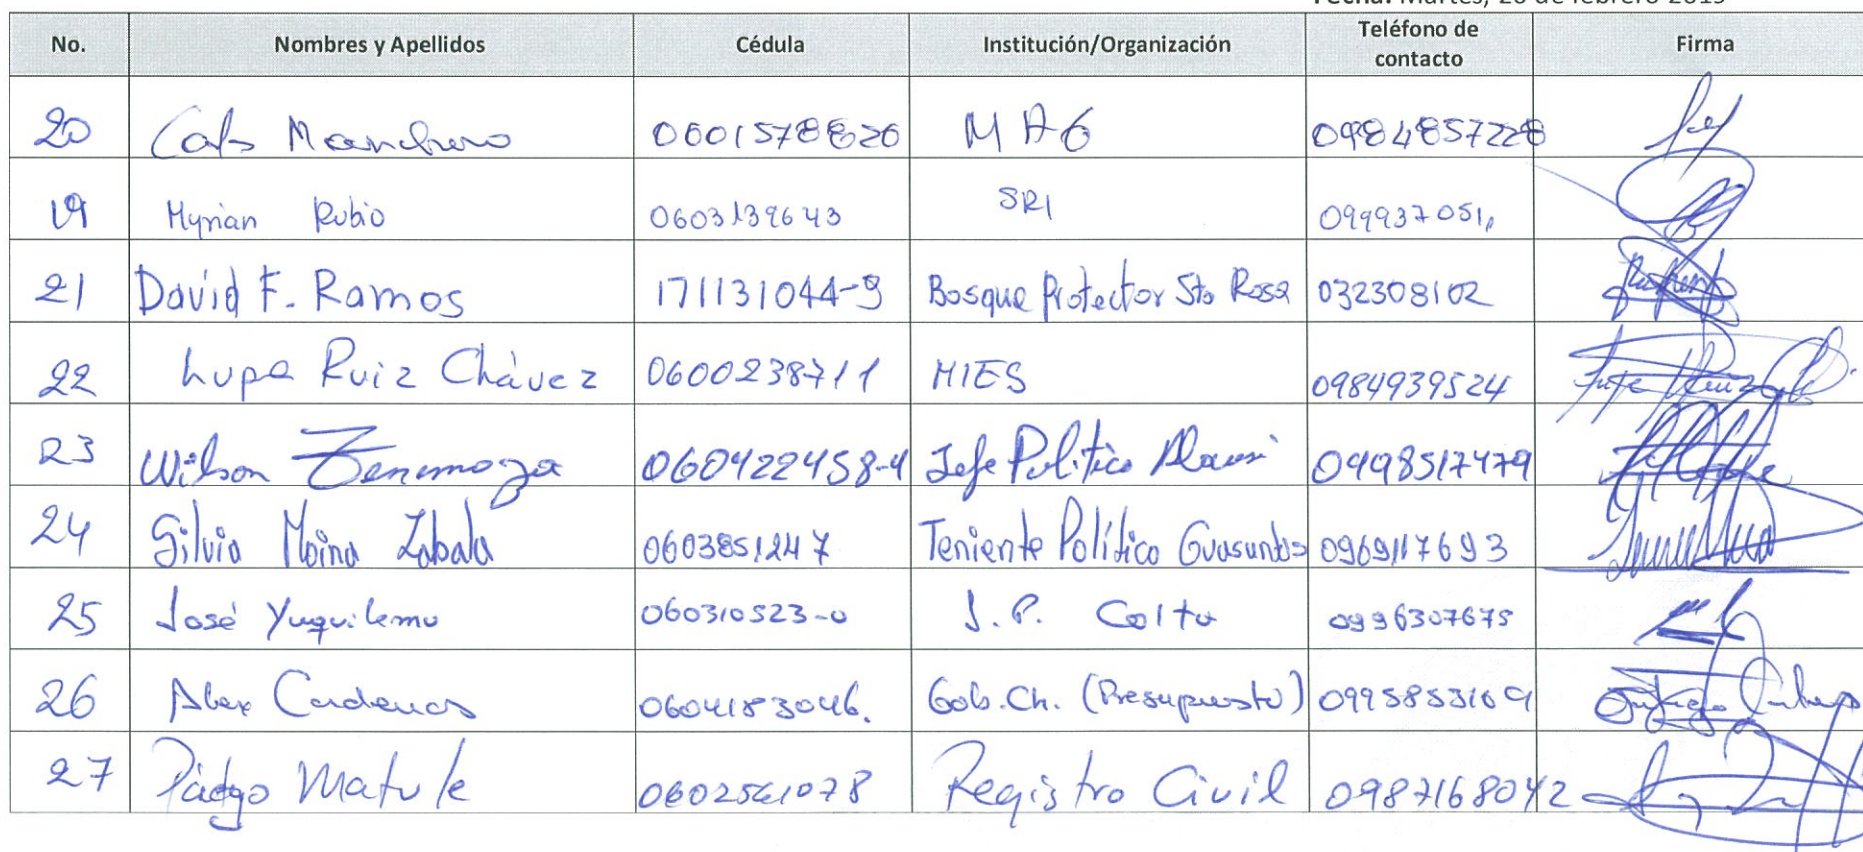 Fecha: Martes, 26 de febrero 2019
No. Nombres y Apellidos Cédula Institución/Organización Teléfono de contacto Firma
20 0601578820 MAG 0984857228
19 Myrian Rubio 0603139643 SRI 099937051
21 David F. Ramos 171131044-9 Bosque Protector Sto Rosa 032308102
22 Lupa Ruiz Chávez 0600238711 MIES 0984939524
23 Wilson 060422458-4 Jefe Político Alausí 0998517479
24 Silvia Moina Zabala 0603851247 Teniente Político Guasuntos 0969117693
25 José Yuquilema 060310523-0 J.P. Colta 0996307675
26 Alex Cadenas 0604183046. Gob. Ch. (Presupuesto) 0995853109
27 0602561078 Registro Civil 0987168042